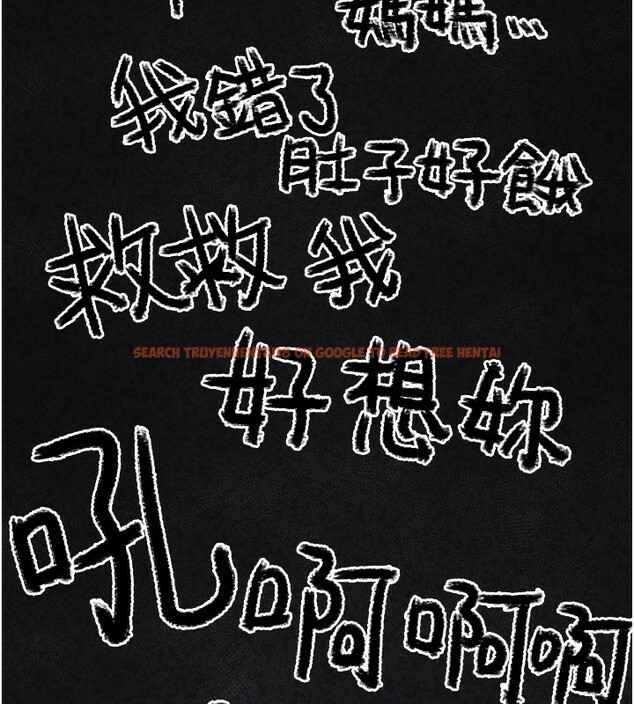 媽媽…
我錯了
肚子好餓
救救我
SEARCH TRUYENHENTAI18 ON GOOGLE TO READ FREE HENTAI
好想妳
吼啊啊啊